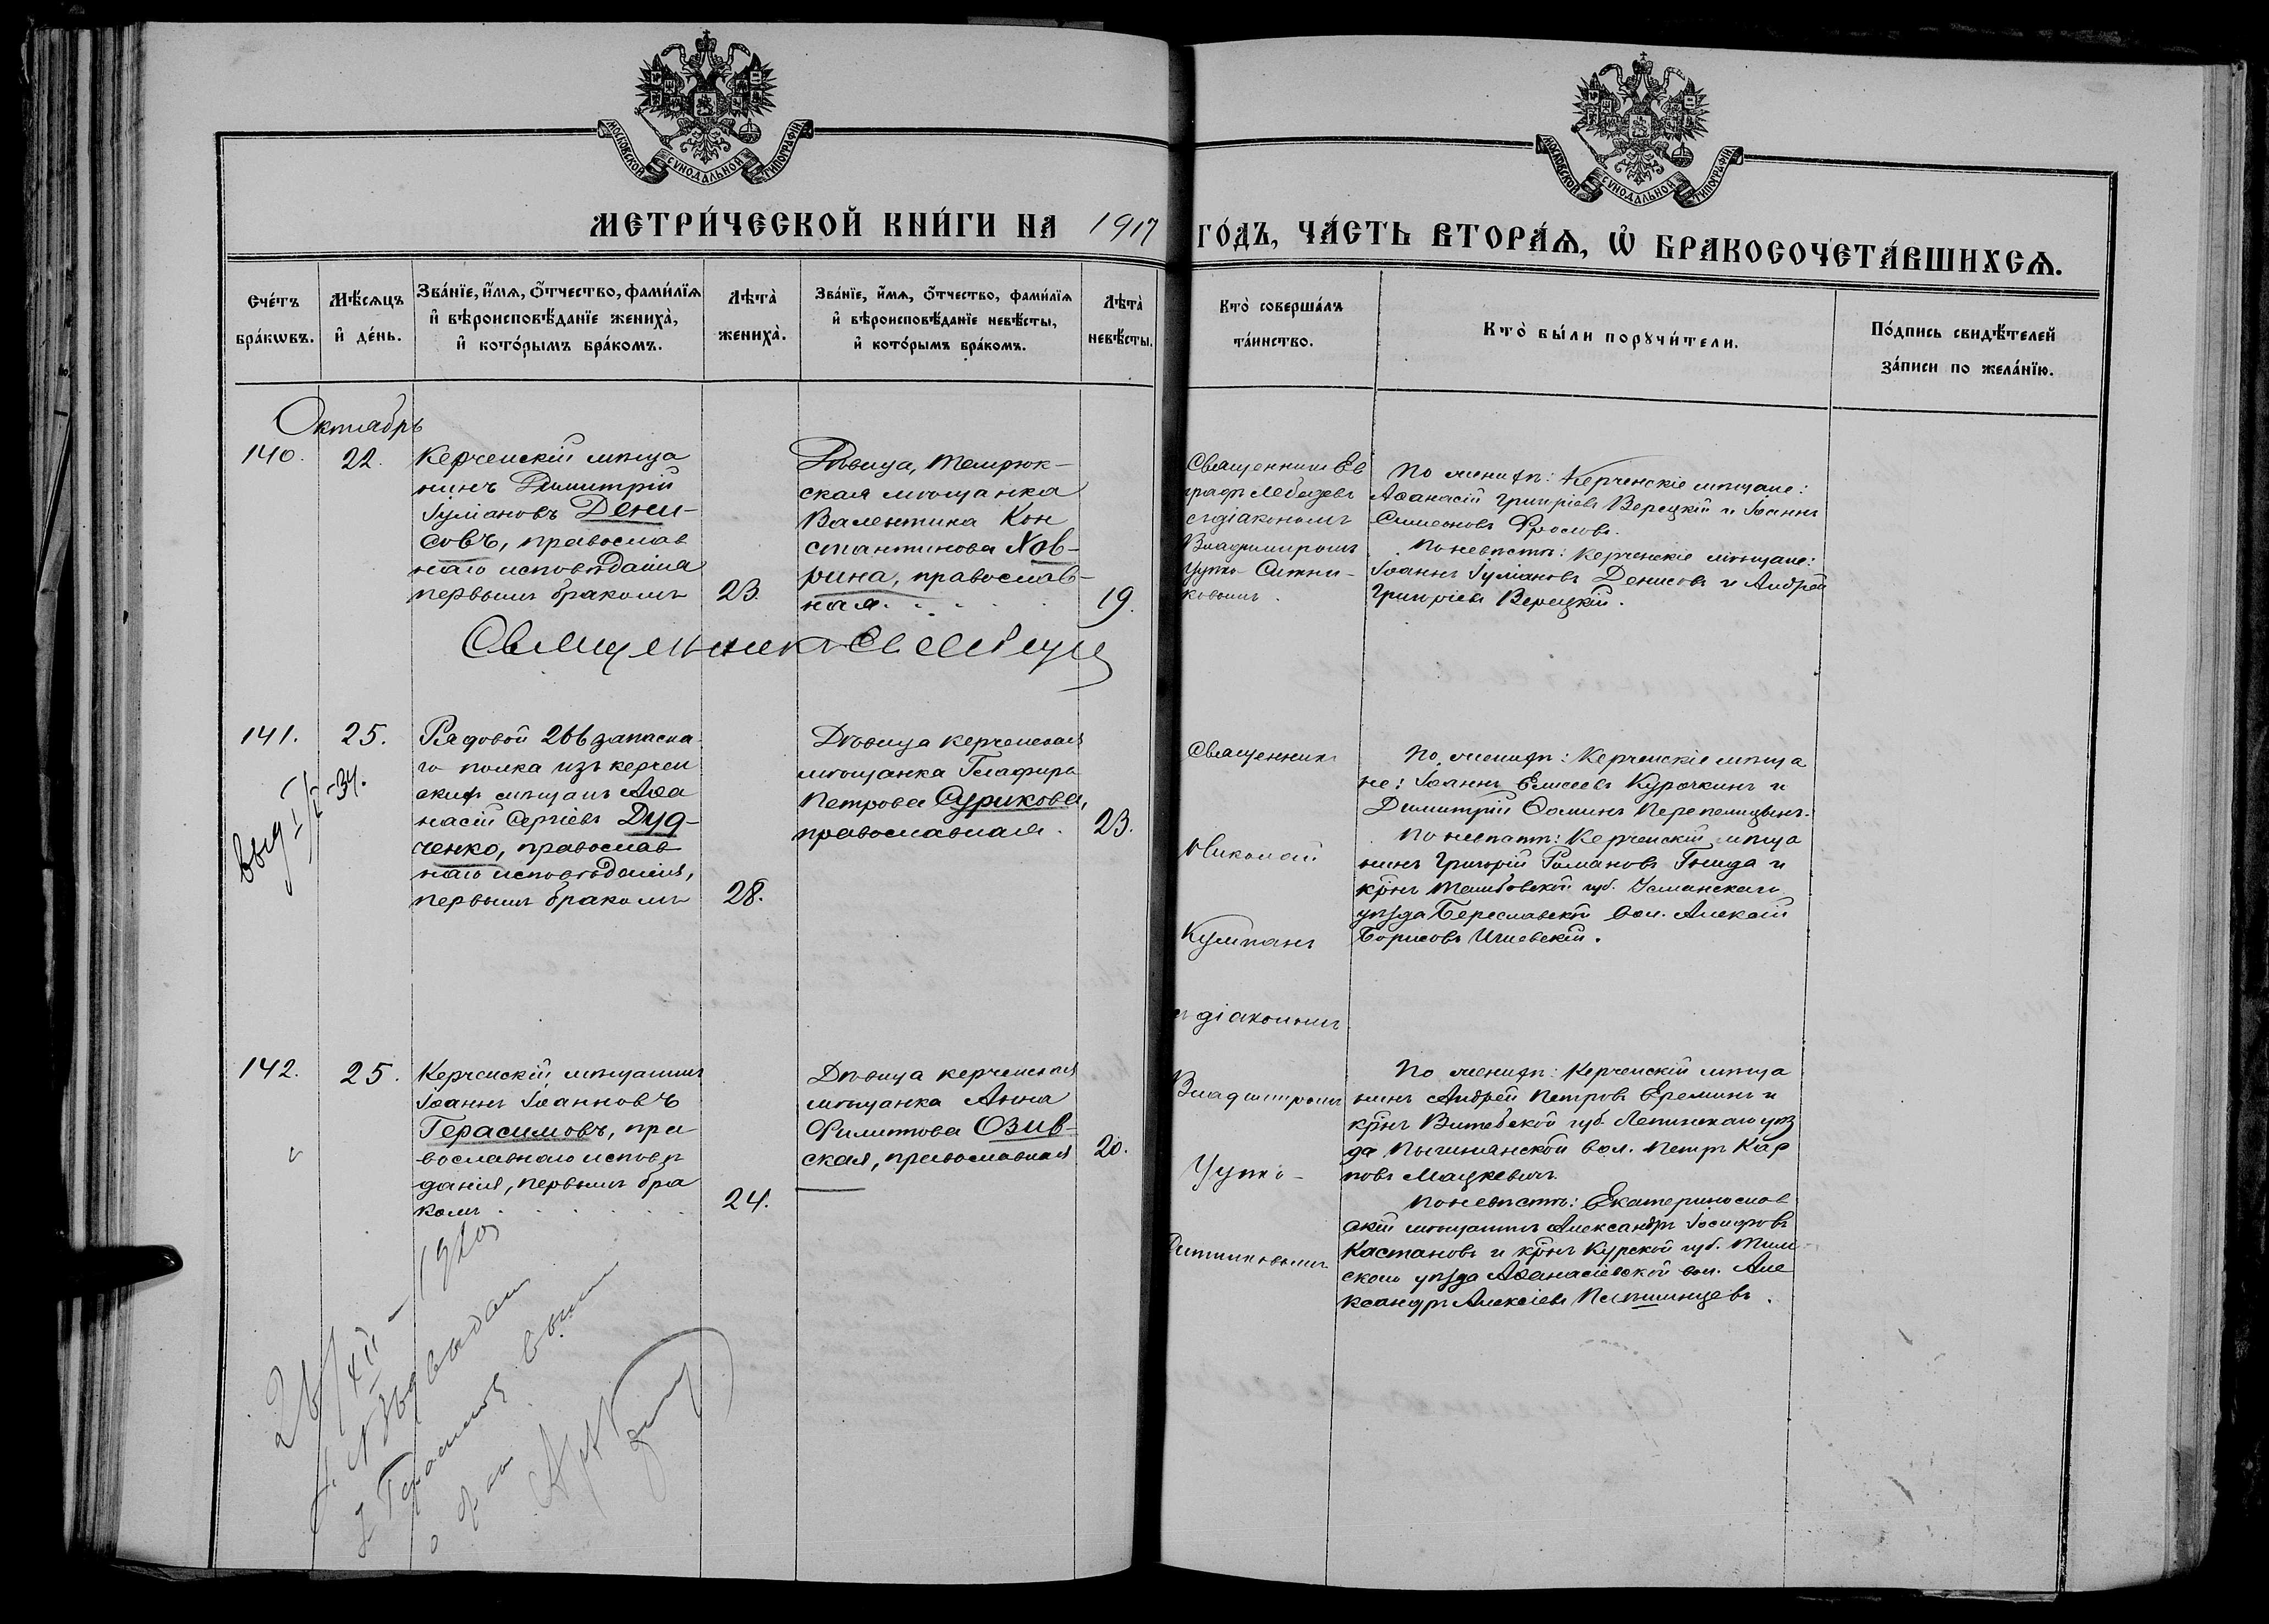 МОСКОВСКОЙ СУНОДАЛЬНОЙ ТИПОГРАФІИ
МОСКОВСКОЙ СУНОДАЛЬНОЙ ТИПОГРАФІИ
МЕТРИ́ЧЕСКОЙ КНИ́ГИ НА 1917
ГО́ДЪ, ЧА́СТЬ ВТОРА́Ѧ, Ѽ БРАКОСОЧЕТА́ВШИХСѦ.
Сче́тъ
бра́кѡвъ.
Мѣ́сѧцъ
и҆ де́нь.
Зва́нїе, и҆́мѧ, ѻ҆́тчество, фами́лїѧ
и҆ вѣроисповѣ́данїе жениха̀,
и҆ кото́рымъ бра́комъ.
Лѣта̀
жениха̀.
Зва́нїе, и҆́мѧ, ѻ҆́тчество, фами́лїѧ
и҆ вѣроисповѣ́данїе невѣ́сты,
и҆ кото́рымъ бра́комъ.
Лѣта̀
невѣ́сты.
Кто̀ соверша́лъ
та́инство.
Кто̀ бы́ли порꙋчи́тели.
По́дпись свидѣ́телей
за́писи по жела́нїю.
Октябрь
140.
22.
Керченскій мѣща
нинъ Димитрій
Іуліановъ Дени-
совъ, православ
наго исповѣданія
первымъ бракомъ
23.
Дѣвица, Темрюк-
ская мѣщанка
Валентина Кон
стантинова Хов-
рина, православ-
ная.
19.
Священникъ Ев
графъ Лебедевъ
съ діакономъ
Владимиромъ
Чупко-Ситни-
ковымъ.
По женихѣ: Керченскіе мѣщане:
Аѳанасій Григоріевъ Верецкій и Іоаннъ
Симеоновъ Фроловъ.
По невѣстѣ: Керченскіе мѣщане:
Іоаннъ Іуліановъ Денисовъ и Андрей
Григоріевъ Верецкій.
Священникъ
141.
25.
выд
34.
Рядовой 266 запасна
го полка изъ керчен
скихъ мѣщанъ Аѳа
насій Сергіевъ Дуд-
ченко, православ
наго исповѣданія,
первымъ бракомъ
28.
Дѣвица керченская
мѣщанка Глафира
Петрова Сурикова,
православная.
23.
Священникъ
Николай
Кумпанъ
съ діакономъ
Владимиромъ
Чупко-
Ситниковымъ
По женихѣ: Керченскіе мѣща
не: Іоаннъ Елисеевъ Курочкинъ и
Димитрій Ѳоминъ Перепелицынъ.
По невѣстѣ: Керченскій мѣща
нинъ Григорій Романовъ Гнида и
крнъ Тамбовской губ. Усманскаго
уѣзда Береславской вол. Алексій
Борисовъ
142.
25.
Керченскій мѣщанинъ
Іоаннъ Іоанновъ
Герасимовъ, пра
вославнаго исповѣ
данія, первымъ бра
комъ
24.
Дѣвица керченская
мѣщанка Анна
Филиппова Озив-
ская, православная
20.
По женихѣ: Керченскій мѣща
нинъ Андрей Петровъ Ереминъ и
крнъ Витебской губ. Лепинскаго уѣз
да вол. Петръ Кар
повъ Мацкевичъ.
По невѣстѣ: Екатеринослав
скій мѣщанинъ Александръ Іосифовъ
Кастановъ и крнъ Курской губ. Тим
скаго уѣзда Аѳанасіевской вол. Але
ксандръ Алексіевъ
26/XII - 1920